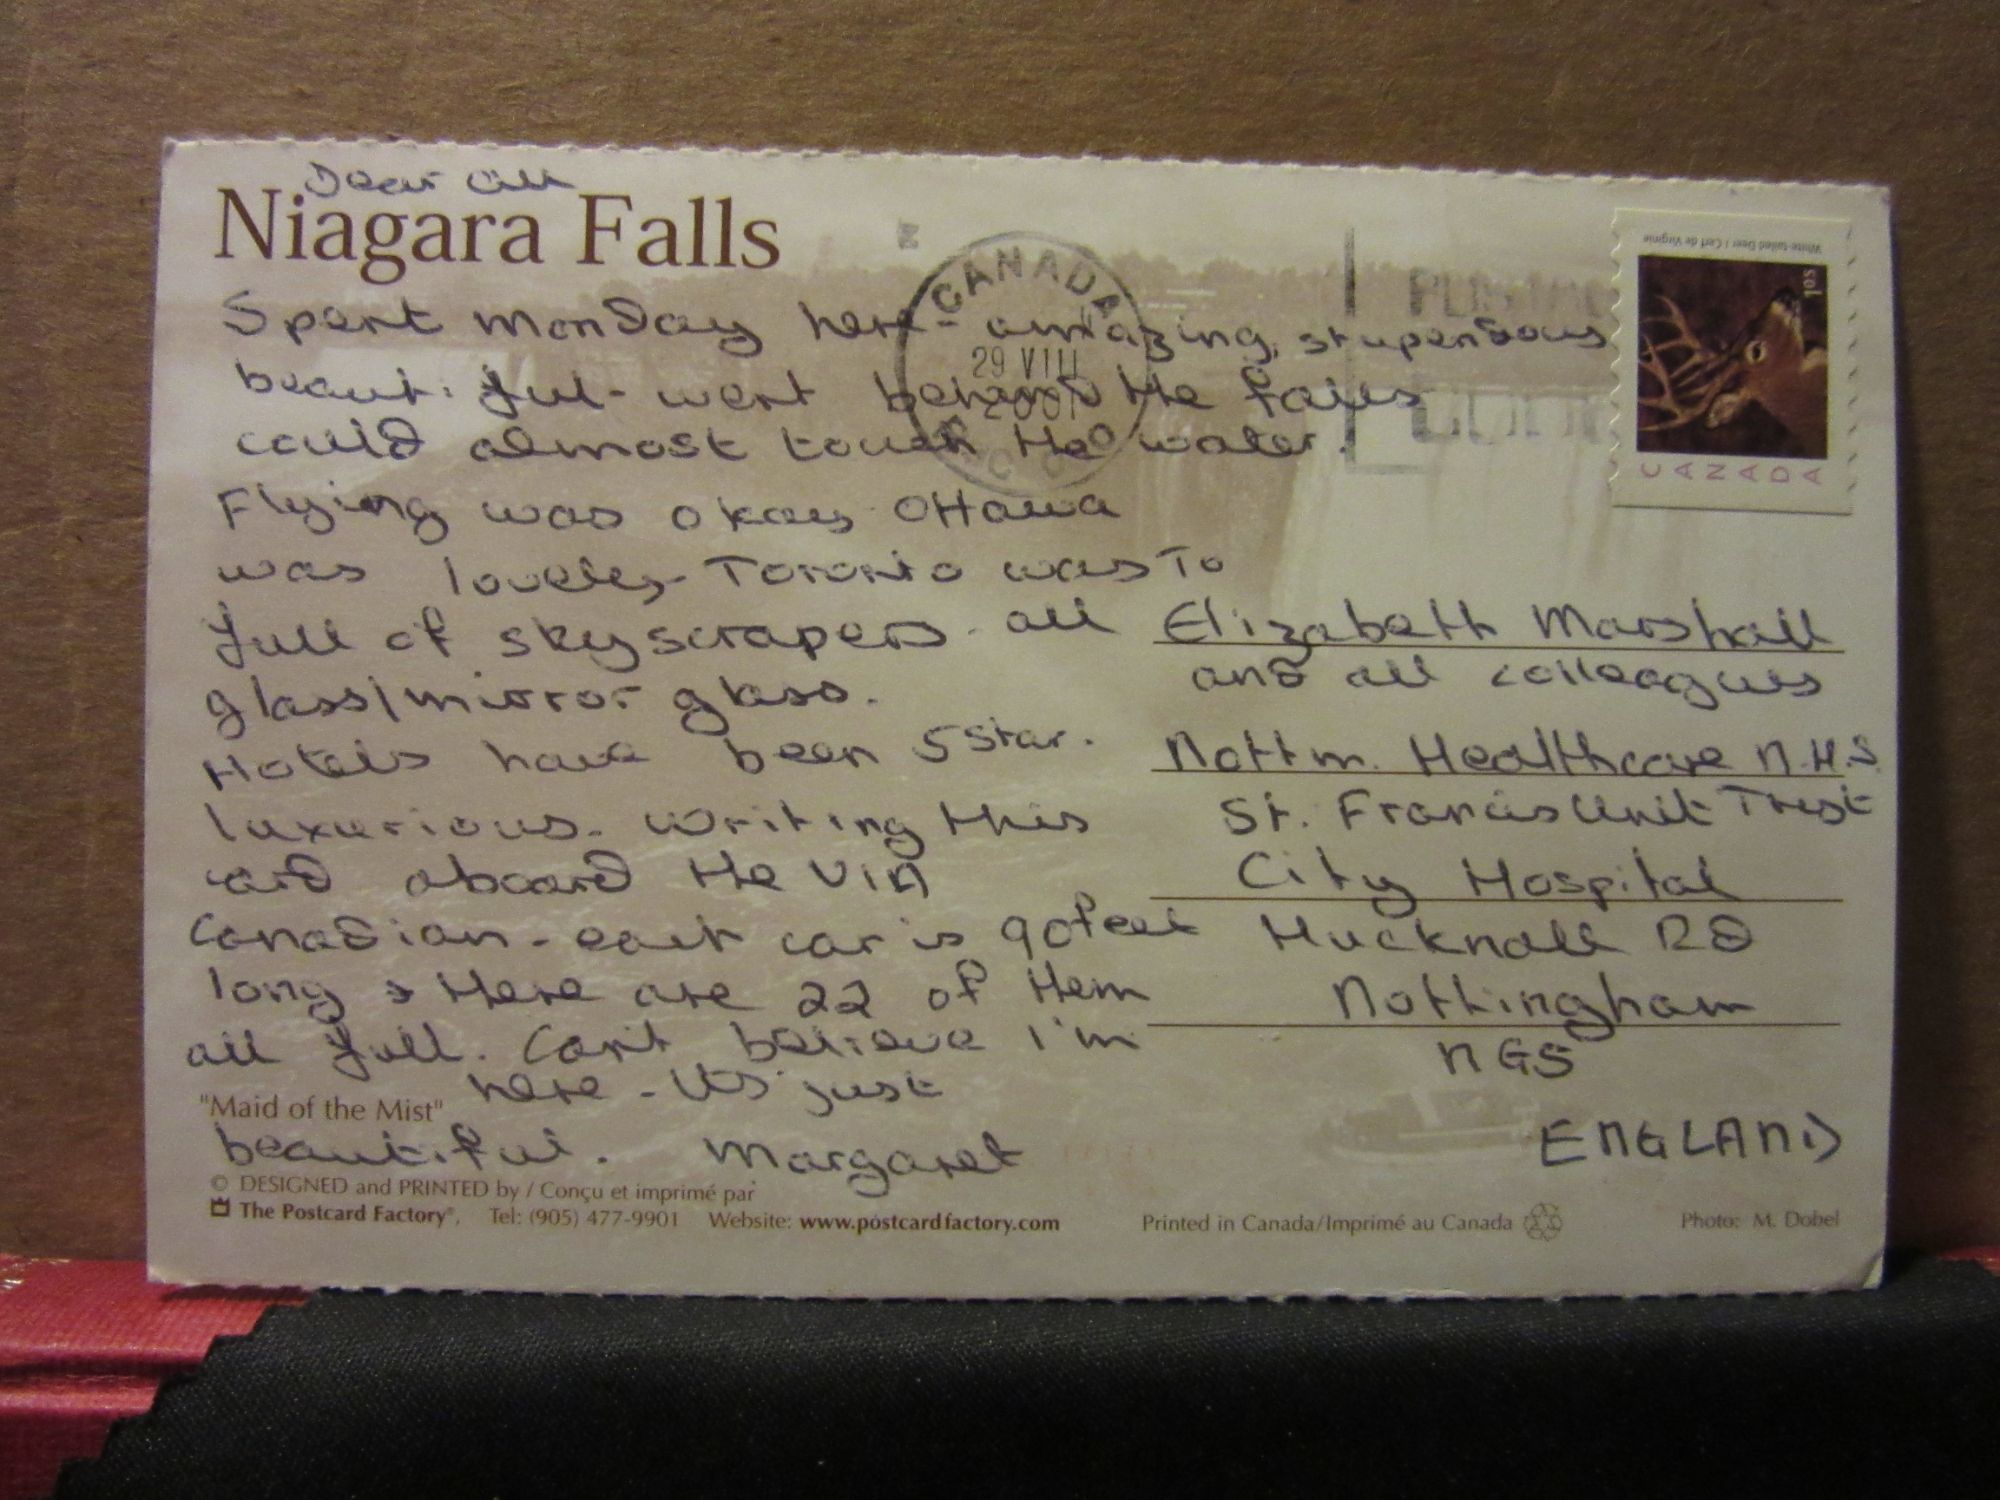 Dear all
Niagara Falls
Spent monday here - amazing, stupendous
beautiful - went behind the falls
could almost touch the water.
Flying was okay Ottawa
was lovely - Toronto was
full of skyscrapers - all
glass/mirror glass.
Hotels have been 5 star.
luxurious. Writing this
card aboard the VIA
Canadian - each car is 90feet
long & there are 22 of them
all full. Can't believe I'm
here - its just
"Maid of the Mist"
beautiful. Margaret
© DESIGNED and PRINTED by / Conçu et imprimé par
The Postcard Factory®, Tel: (905) 477-9901 Website: www.postcardfactory.com
CANADA
29 VIII
White-tailed Deer / Cerf de Virginie
1.05
CANADA
To
Elizabeth Marshall
and all colleagues
Nottm. Healthcare N.H.S
St. Francis Unit Trust
City Hospital
Hucknall Rd
Nottingham
NG5
ENGLAND
Printed in Canada/Imprimé au Canada
Photo: M. Dobel